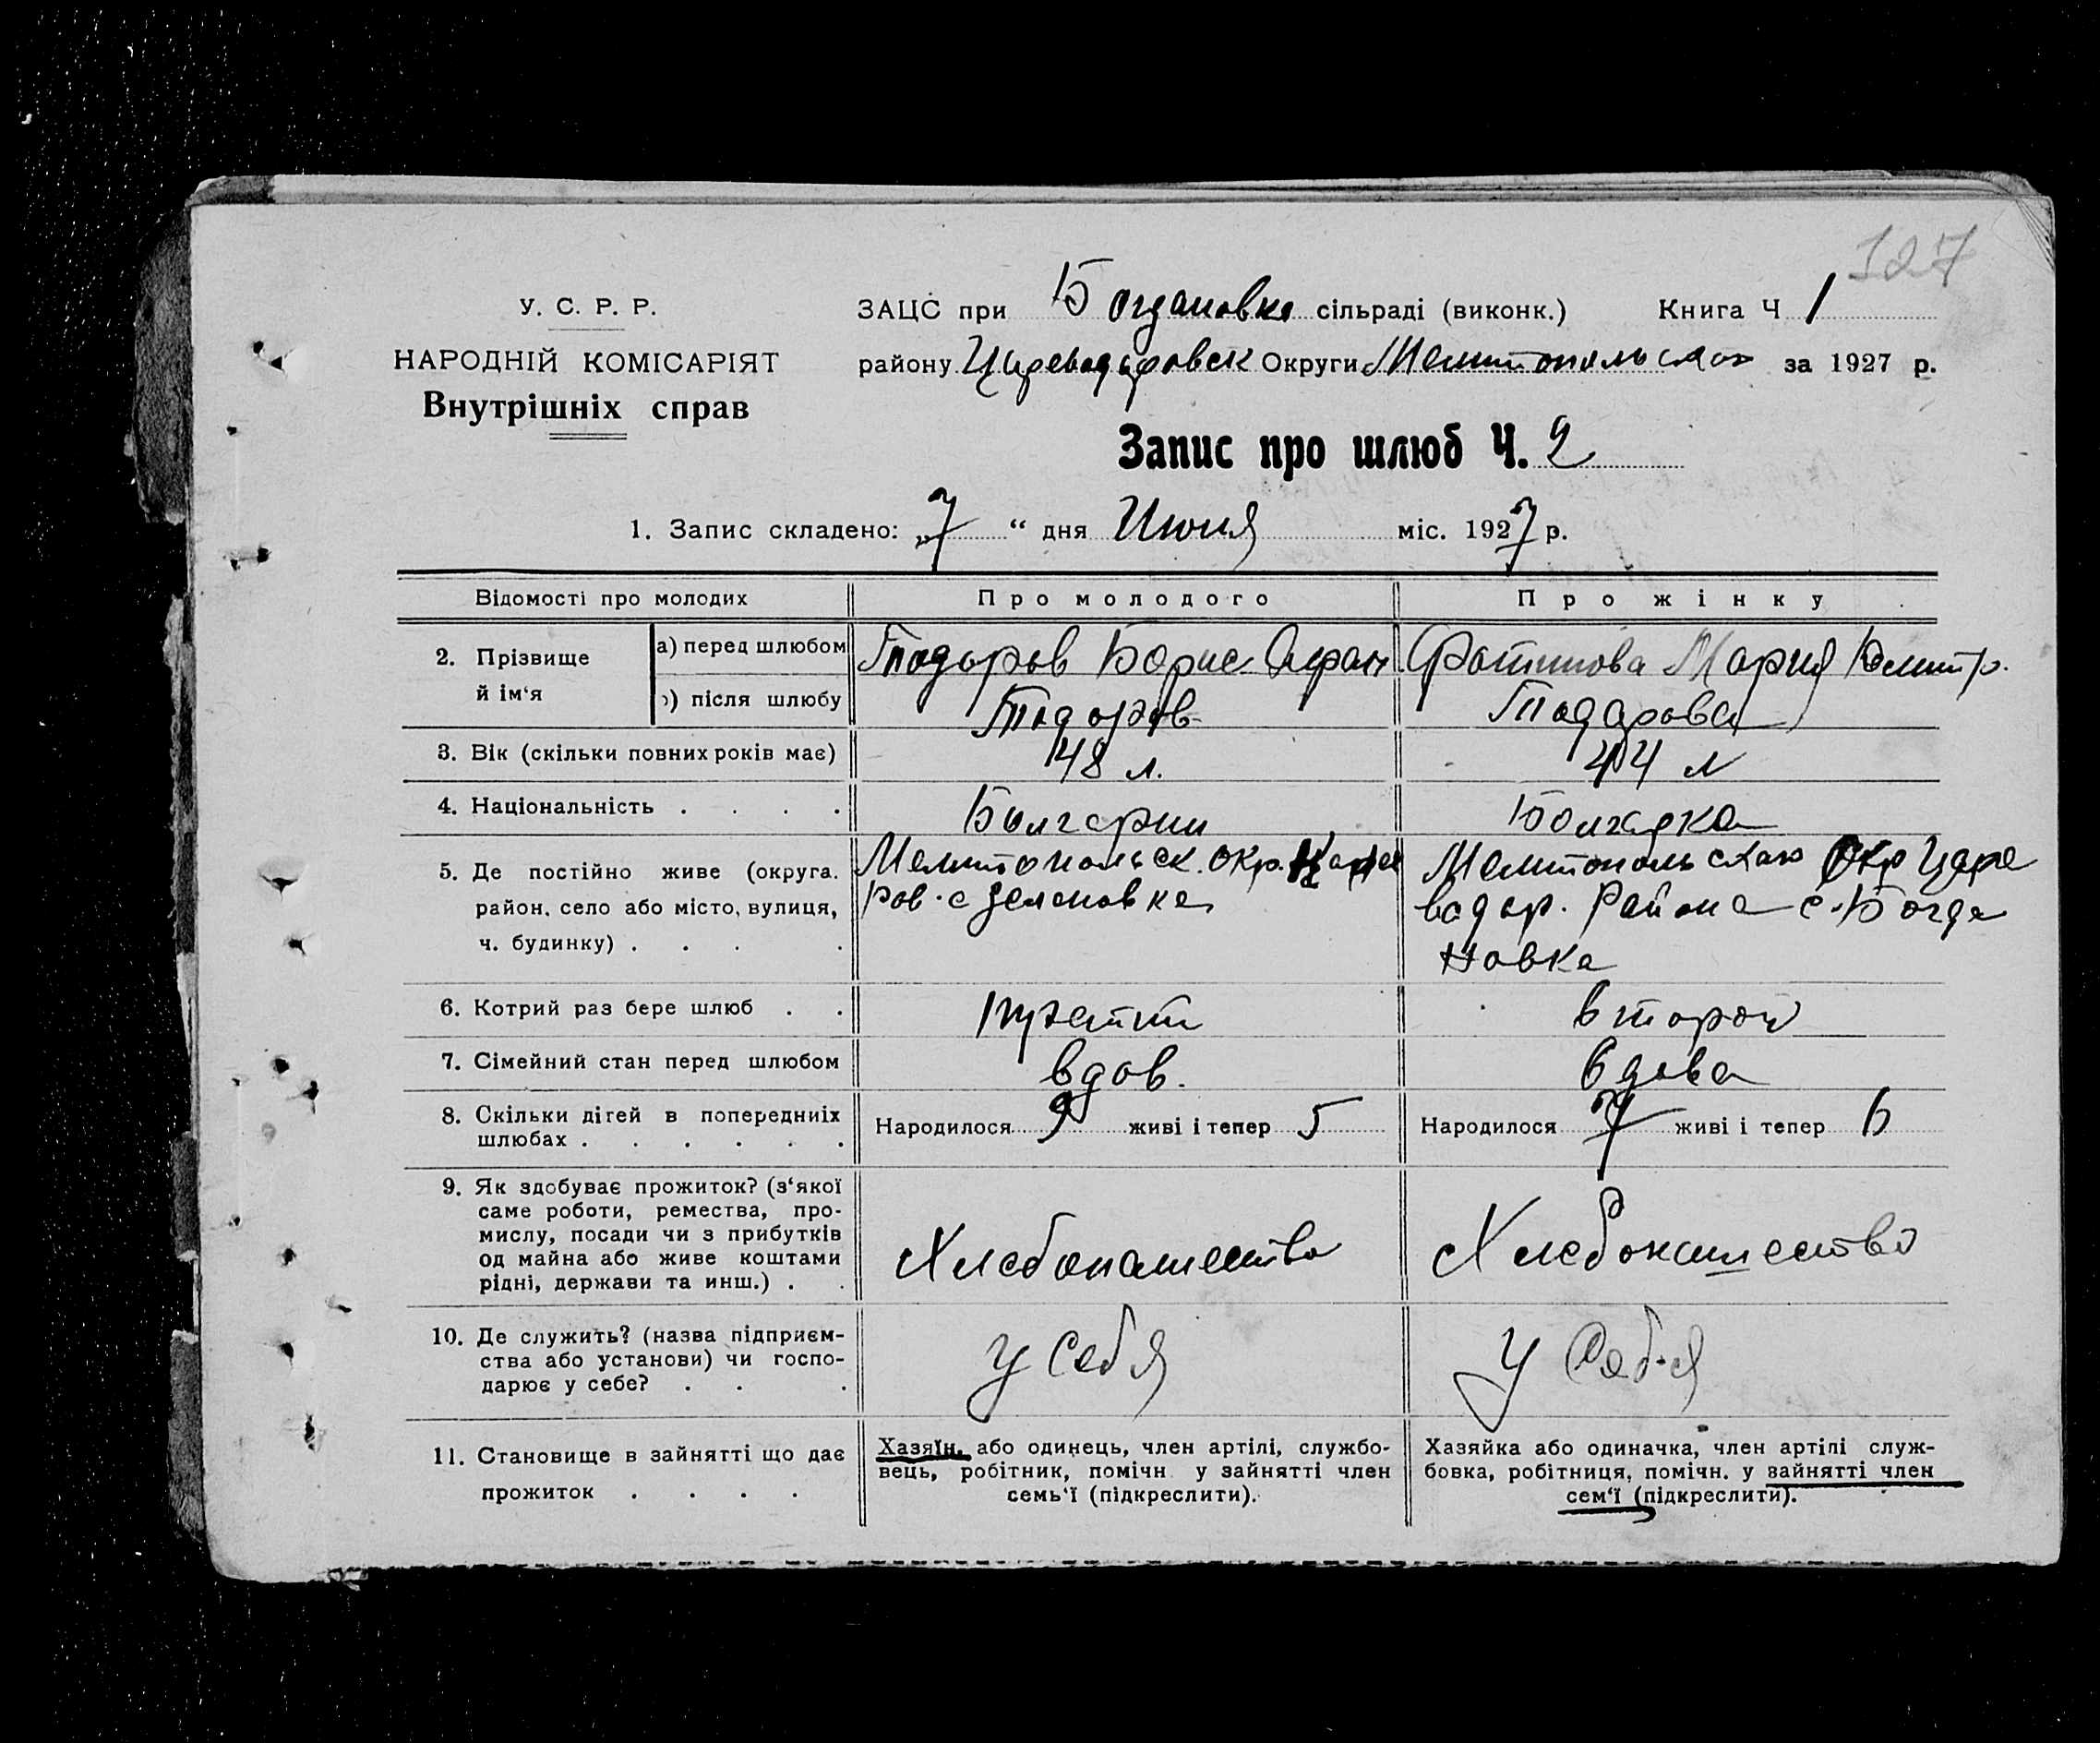 127
У. С. Р. Р.
НАРОДНІЙ КОМІСАРІЯТ
Внутрішніх справ
ЗАЦС при Богдановке сільраді (виконк.) Книга Ч 1
району Царевадаровск Округи Мелитопольской за 1927 р.
Запис про шлюб Ч. 2
1. Запис складено: „7 “ дня Июня міс. 1927 р.
Відомості про молодих Про молодого Про жінку
2. Прізвище й ім‘я
а) перед шлюбом Тодоров Борис Афан. Мария Дмитр.
б) після шлюбу Тодоров Тодарова
3. Вік (скільки повних років має) 48 л. 44 л
4. Національність . . . . Былгарин Болгарка
5. Де постійно живе (округа. район, село або місто, вулиця, ч. будинку) . . . .
Мелитопольск. окр.
ров. с Зеленовка
Мелитопольскаю Окр Царе
водар. Района с. Богда
новка
6. Котрий раз бере шлюб . . второй
7. Сімейний стан перед шлюбом вдов. вдова
8. Скільки дігей в попередниіх шлюбах . . . . . .
Народилося 9 живі і тепер 5 Народилося 7 живі і тепер 6
9. Як здобуває прожиток? (з‘якої
саме роботи, ремества, про-
мислу, посади чи з прибутків
од майна або живе коштами
рідні, держави та инш.) . .
Хлебопашество Хлебопашество
10. Де служить? (назва підприєм-
ства або установи) чи госпо-
дарює у себе? . . .
у себя у себя
11. Становище в зайнятті що дає
прожиток . . . .
Хазяїн, або одинець, член артілі, службо-
вець, робітник, помічн у зайнятті член
семь‘ї (підкреслити).
Хазяйка або одиначка, член артілі служ-
бовка, робітниця, помічн. у зайнятті член
сем‘ї (підкреслити).